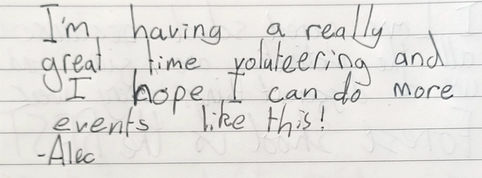 I'm having a really
great time voluteering and
I hope I can do more
events like this!
-Alec